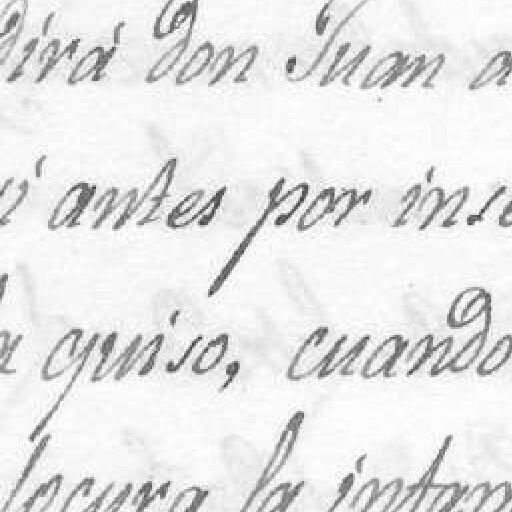 dirá don Juan a
antes por inse
quiso, cuando
locura la infam